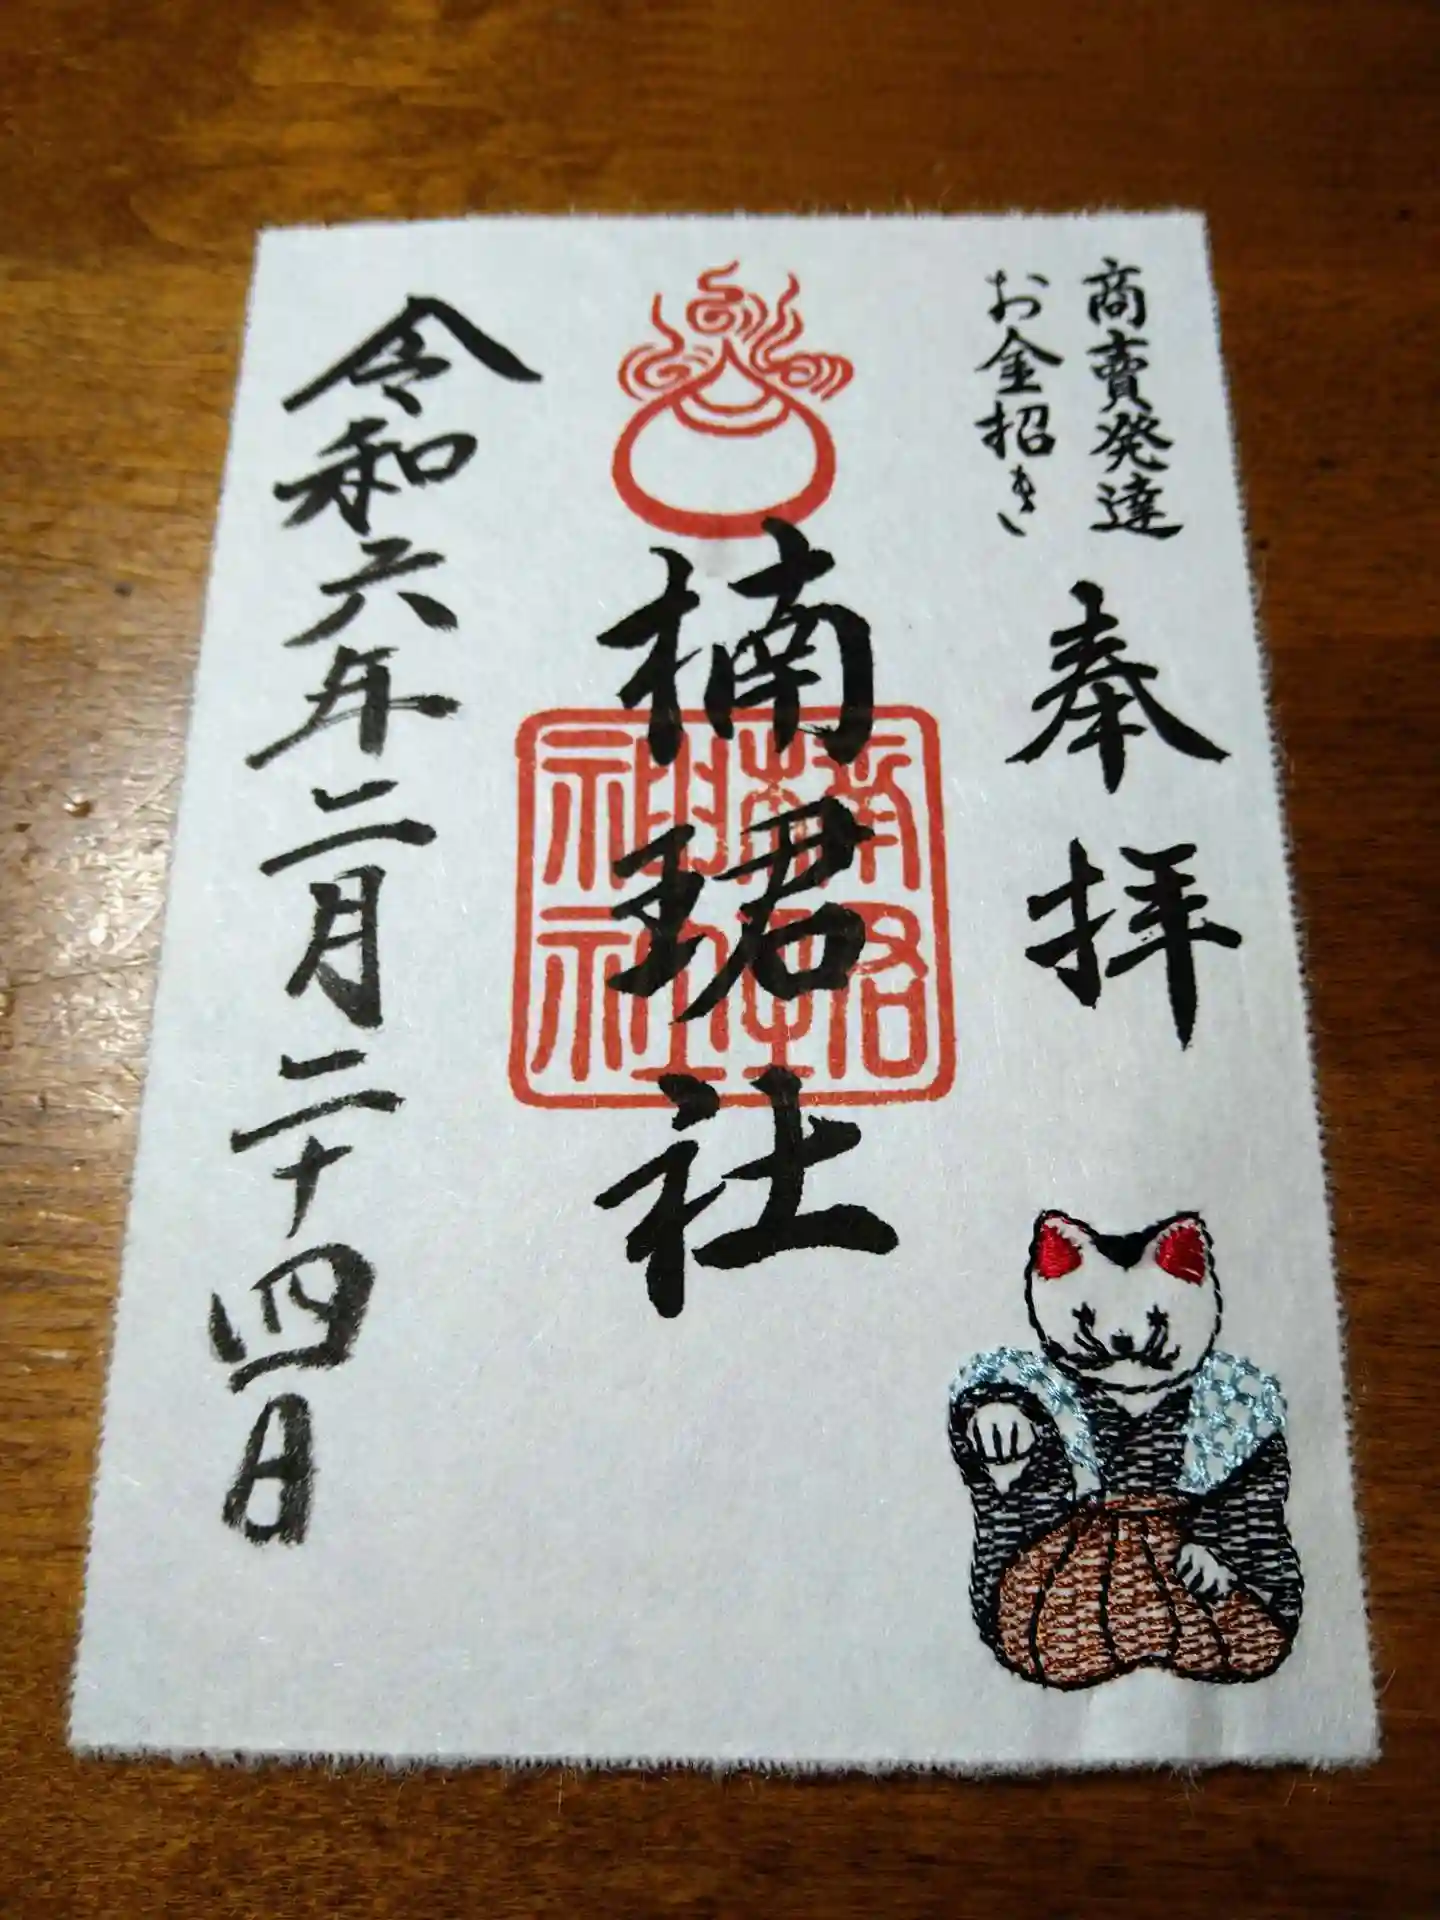 商賣発達
お金招き
奉拝
楠珺社
令和六年二月二十四日